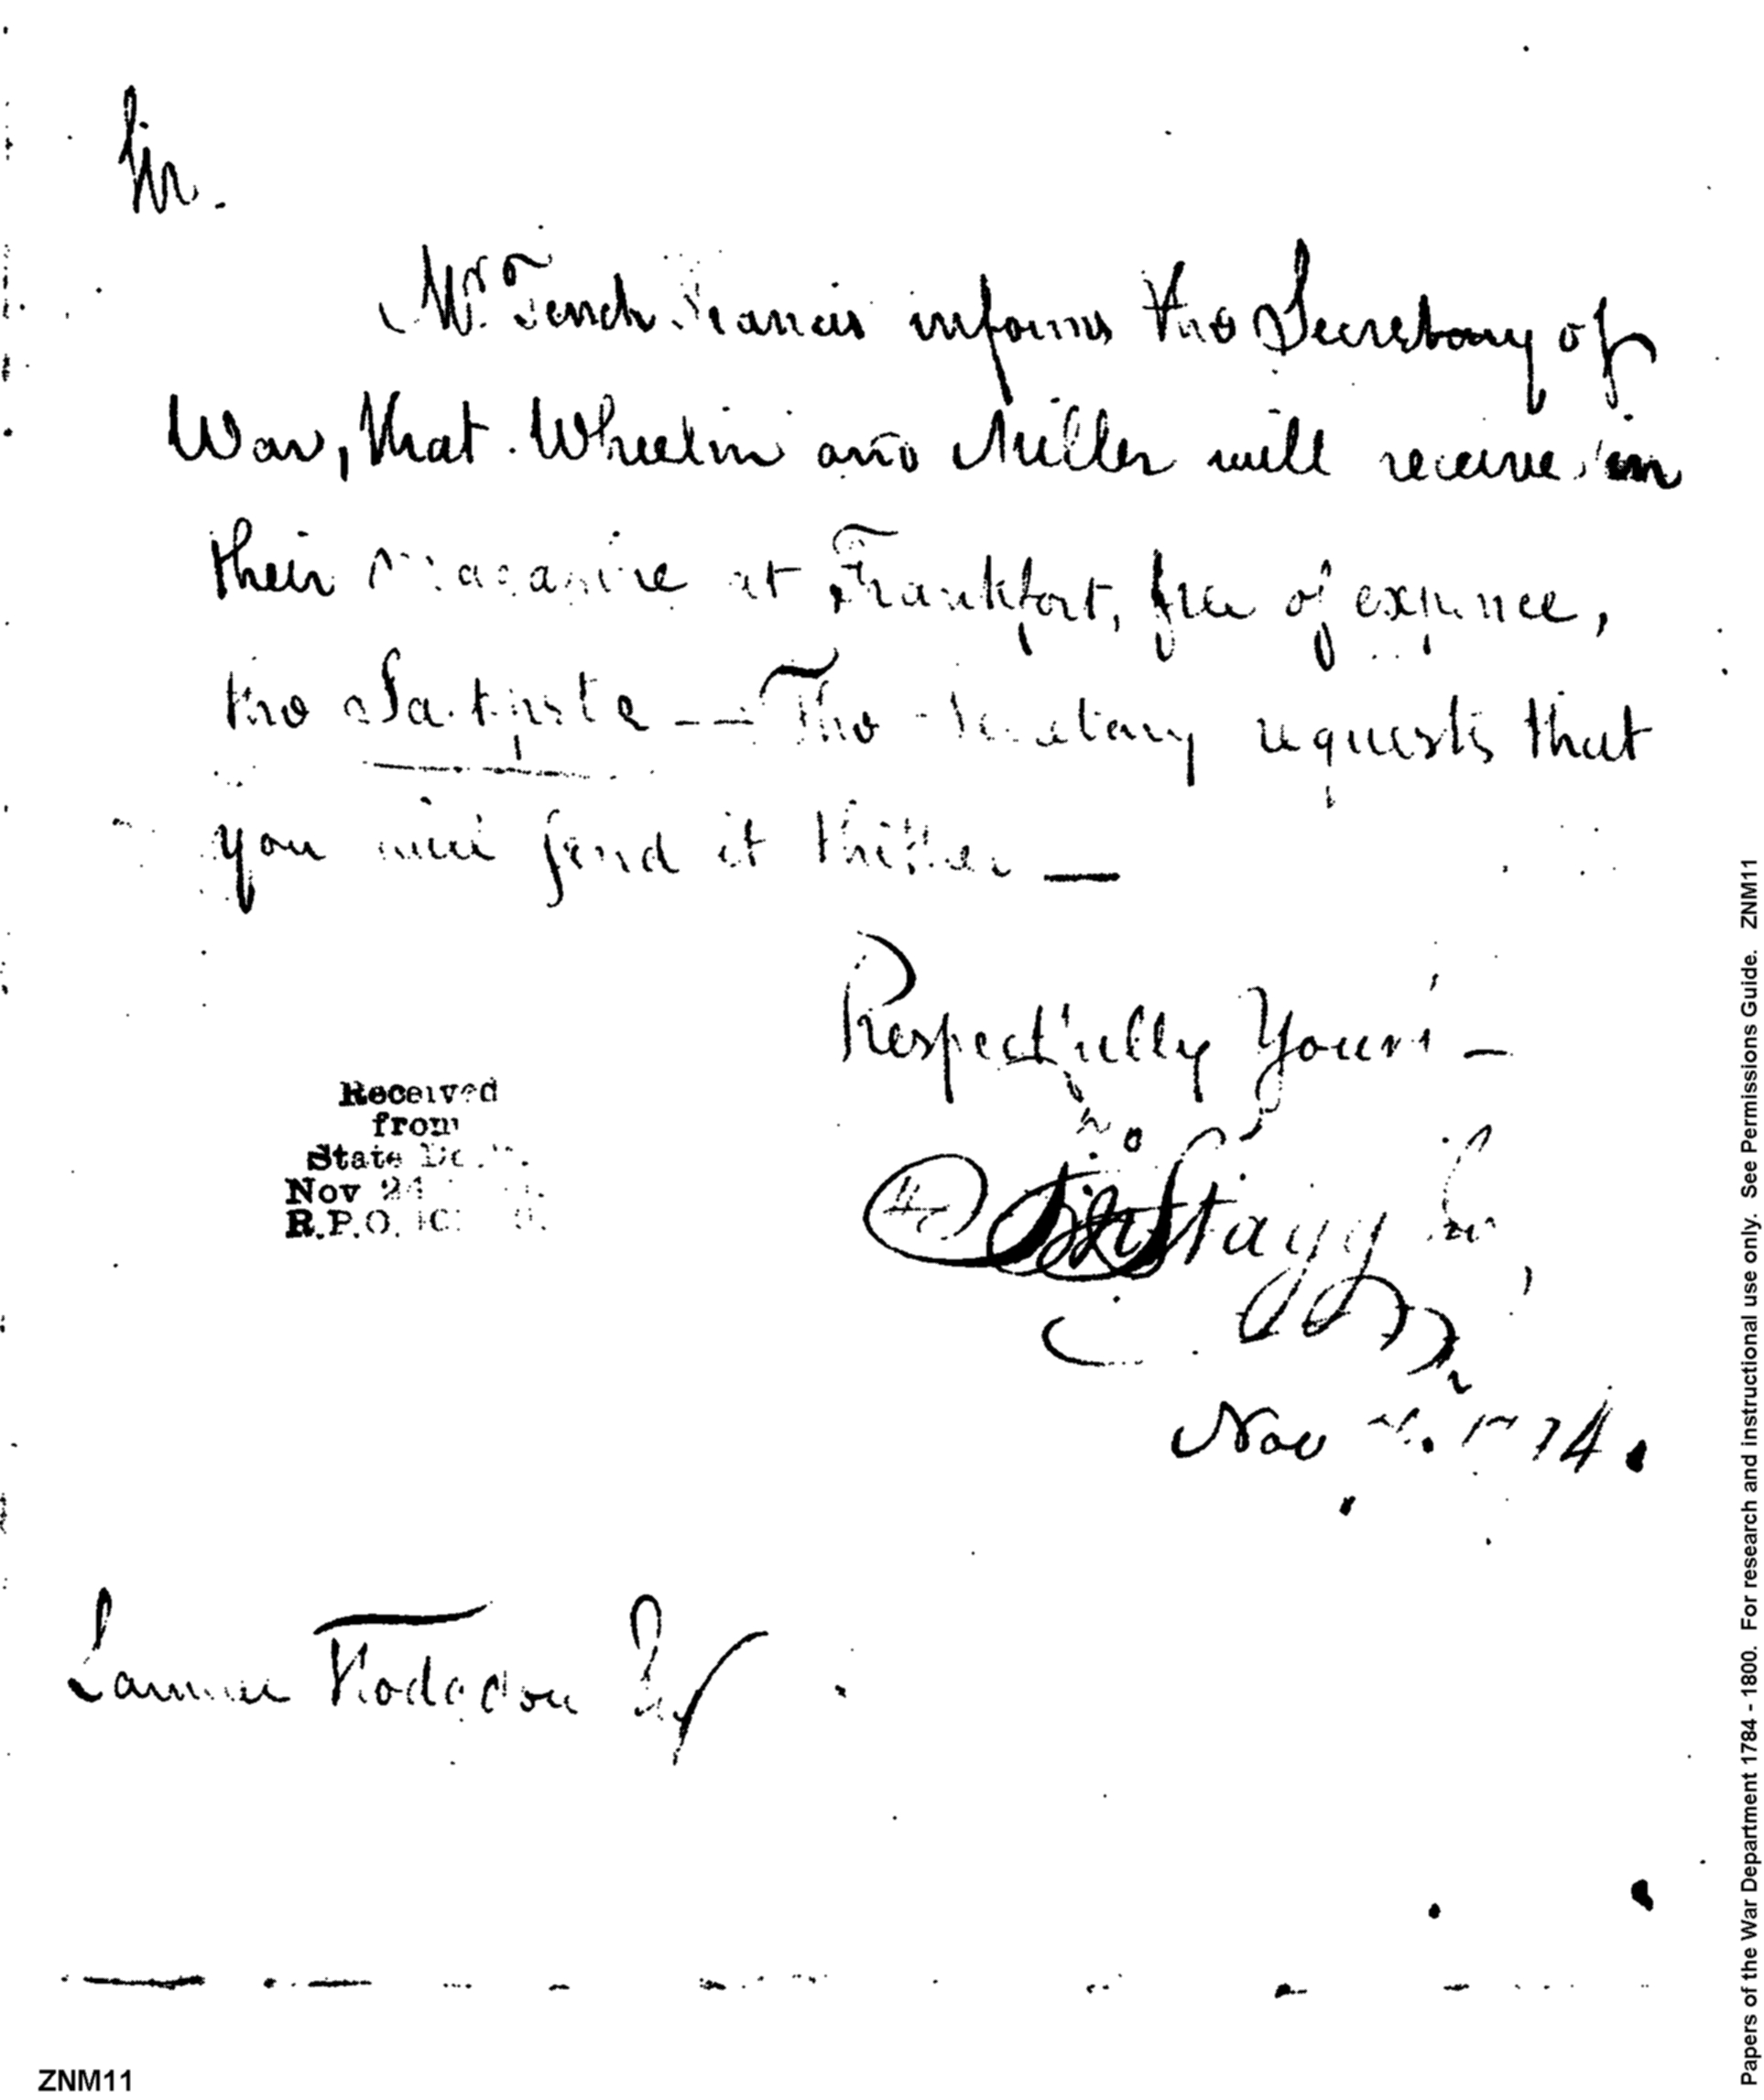 Sir.
Mr. Tench Francis informs the Secretary of
War, that Wheelin and Miller will receive in
their Magazine at Frankfort, free of expence,
the Saltpetre -- The Secretary requests that
you will send it thither —
Respectfully Yours —
Jno Stagg Jr
Nov 1794.
Received
from
State De
Nov 21
R.P.O.
Samuel Hodgdon Esqr
ZNM11
Papers of the War Department 1784 - 1800. For research and instructional use only. See Permissions Guide. ZNM11